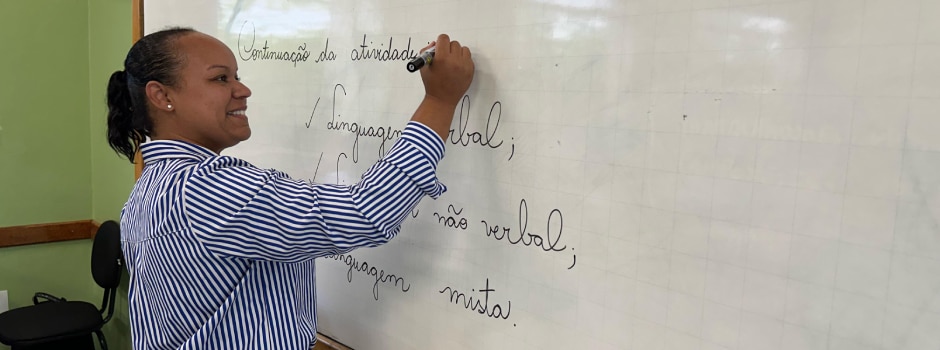 Continuação da atividade
✓ Linguagem verbal;
✓ Linguagem não verbal;
Linguagem mista.